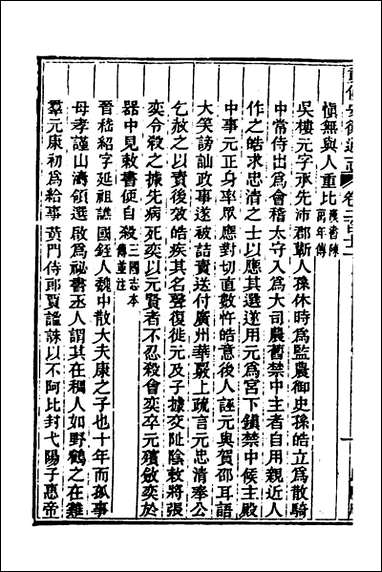 重修安徽通志 卷二百
慎無與人重比後書陳萬年傳
吳樓元字承先沛郡蘄人孫休時爲監農御史孫皓立爲散騎
中常侍出爲會稽太守入爲大司農舊禁中主者自用親近人
作之皓求忠清之士以應其選遂用元爲宮下鎮禁中候主殿
中事元正身率眾應對切直數忤皓意後人誣元與賀邵耳語
大笑謗訕政事遂被詰責送付廣州華覈上疏言元忠清奉公
乞赦之以責後效皓疾其名聲復徙元及子據交阯陰敕將張
奕令殺之據先病死奕以元賢者不忍殺會奕卒元殯斂奕於
器中見敕書便自殺三國志本傳並注
晉嵇紹字延祖譙國銍人魏中散大夫康之子也十年而孤事
母孝謹山濤領選啟爲祕書丞人謂其在稠人如野鶴之在雞
羣元康初爲給事黃門侍郎賈謐誅以不阿比封弋陽子惠帝